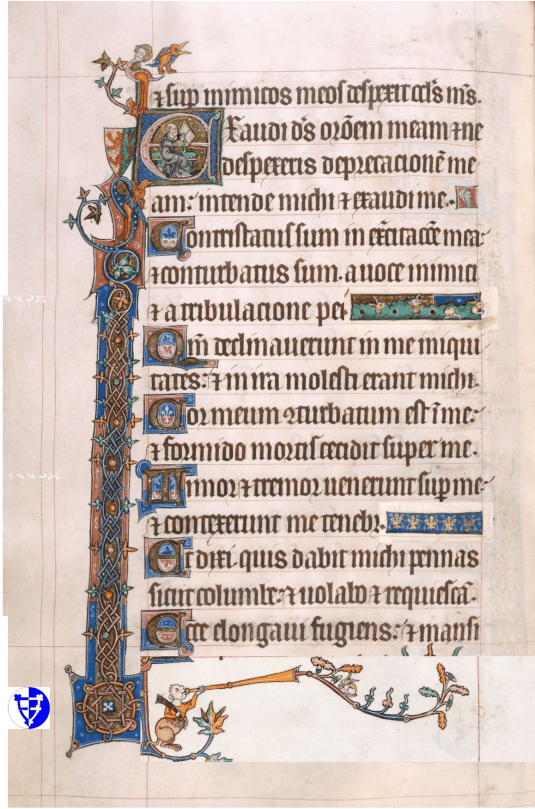 ⁊ sup inimicos meos despexit ocl's m's.
Exaudi d's or̄oēm meam ⁊ ne
despexeris deprecacionē me
am: intende michi ⁊ exaudi me.
Contristatus sum in ex̄citacōe mea
⁊ conturbatus sum. a uoce inimici
⁊ a tribulacione pec
Qm̄ declinauerunt in me iniqui
tates: ⁊ in ira molesti erant michi.
Cor meum ꝯturbatum est ī me:
⁊ formido mortis cecidit super me.
Timor ⁊ tremor uenerunt sup me
⁊ contexerunt me tenebr.
Et dixi. quis dabit michi pennas
sicut columbe: ⁊ uolabo ⁊ requiescā.
Ecce elongaui fugiens: ⁊ mansi